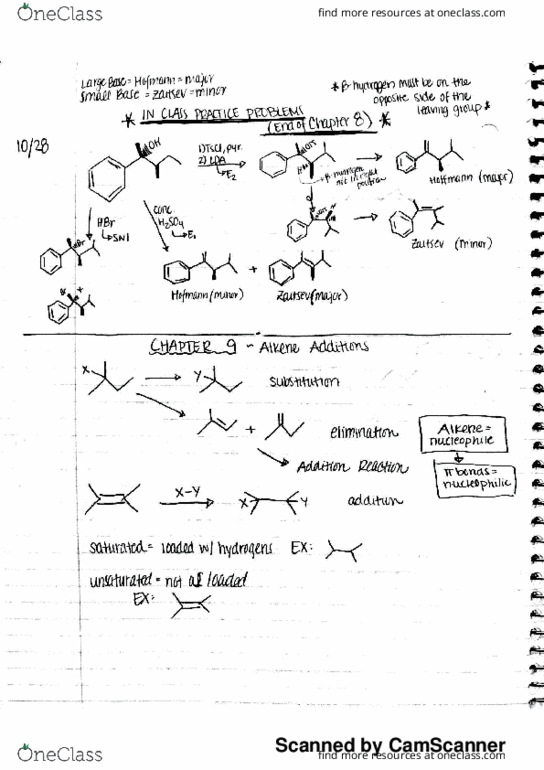 OneClass
find more resources at oneclass.com
Large Base = Hofmann = major
Small Base = Zaitsev = minor
* β hydrogen must be on the opposite side of the leaving group *
* IN CLASS PRACTICE PROBLEMS
(End of Chapter 8) *
10/28
OH
1) TsCl, pyr.
2) LDA
E2
OTs
H
Hoffmann (major)
HBr
SN1
conc.
H2SO4
E1
OTs
Zaitsev (minor)
Br
Hofmann (minor)
+
Zaitsev (major)
CHAPTER 9 - Alkene Additions
X
Y
substitution
+
elimination
Addition Reaction
Alkene = nucleophile
π bonds = nucleophilic
X-Y
X
Y
addition
saturated = loaded w/ hydrogens EX:
unsaturated = not all loaded
EX:
Scanned by CamScanner
OneClass
find more resources at oneclass.com